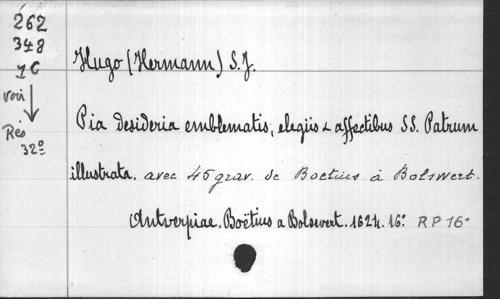 262
348
7 C
voir
Rés
32º
Hugo (Hermann) S.J.
Pia desideria emblematis, elegiis & affectibus SS. Patrum
illustrata. avec 45 grav. de Boetius à Bolswert.
Antverpiae. Boëtius a Bolswert. 1624. 16º. RP 16º